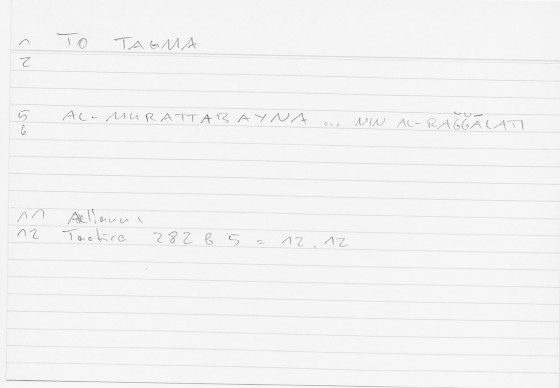 1 TO TAGMA
2
5 AL-MURATTABAYNA ... MIN AL-RAĞĞĀLATI
6
11 Aeliani
12 Tactica 282 B 5 = 12.12